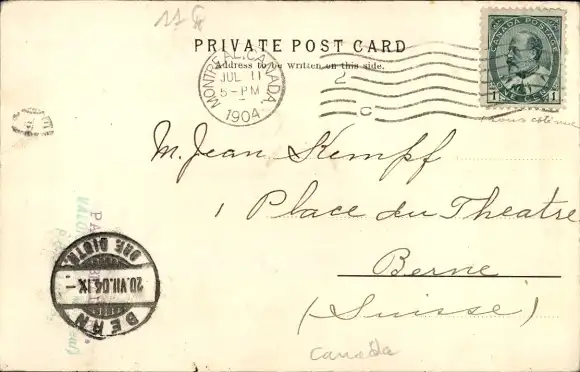 PRIVATE POST CARD
Address to be written on this side.
MONTREAL, CANADA.
JUL 11
5-PM
1904
CANADA POSTAGE
1 1
M. Jean Kempf
1 Place du Theatre
Berne
(Suisse)
Canada
BERN
20.VII.04.IX-